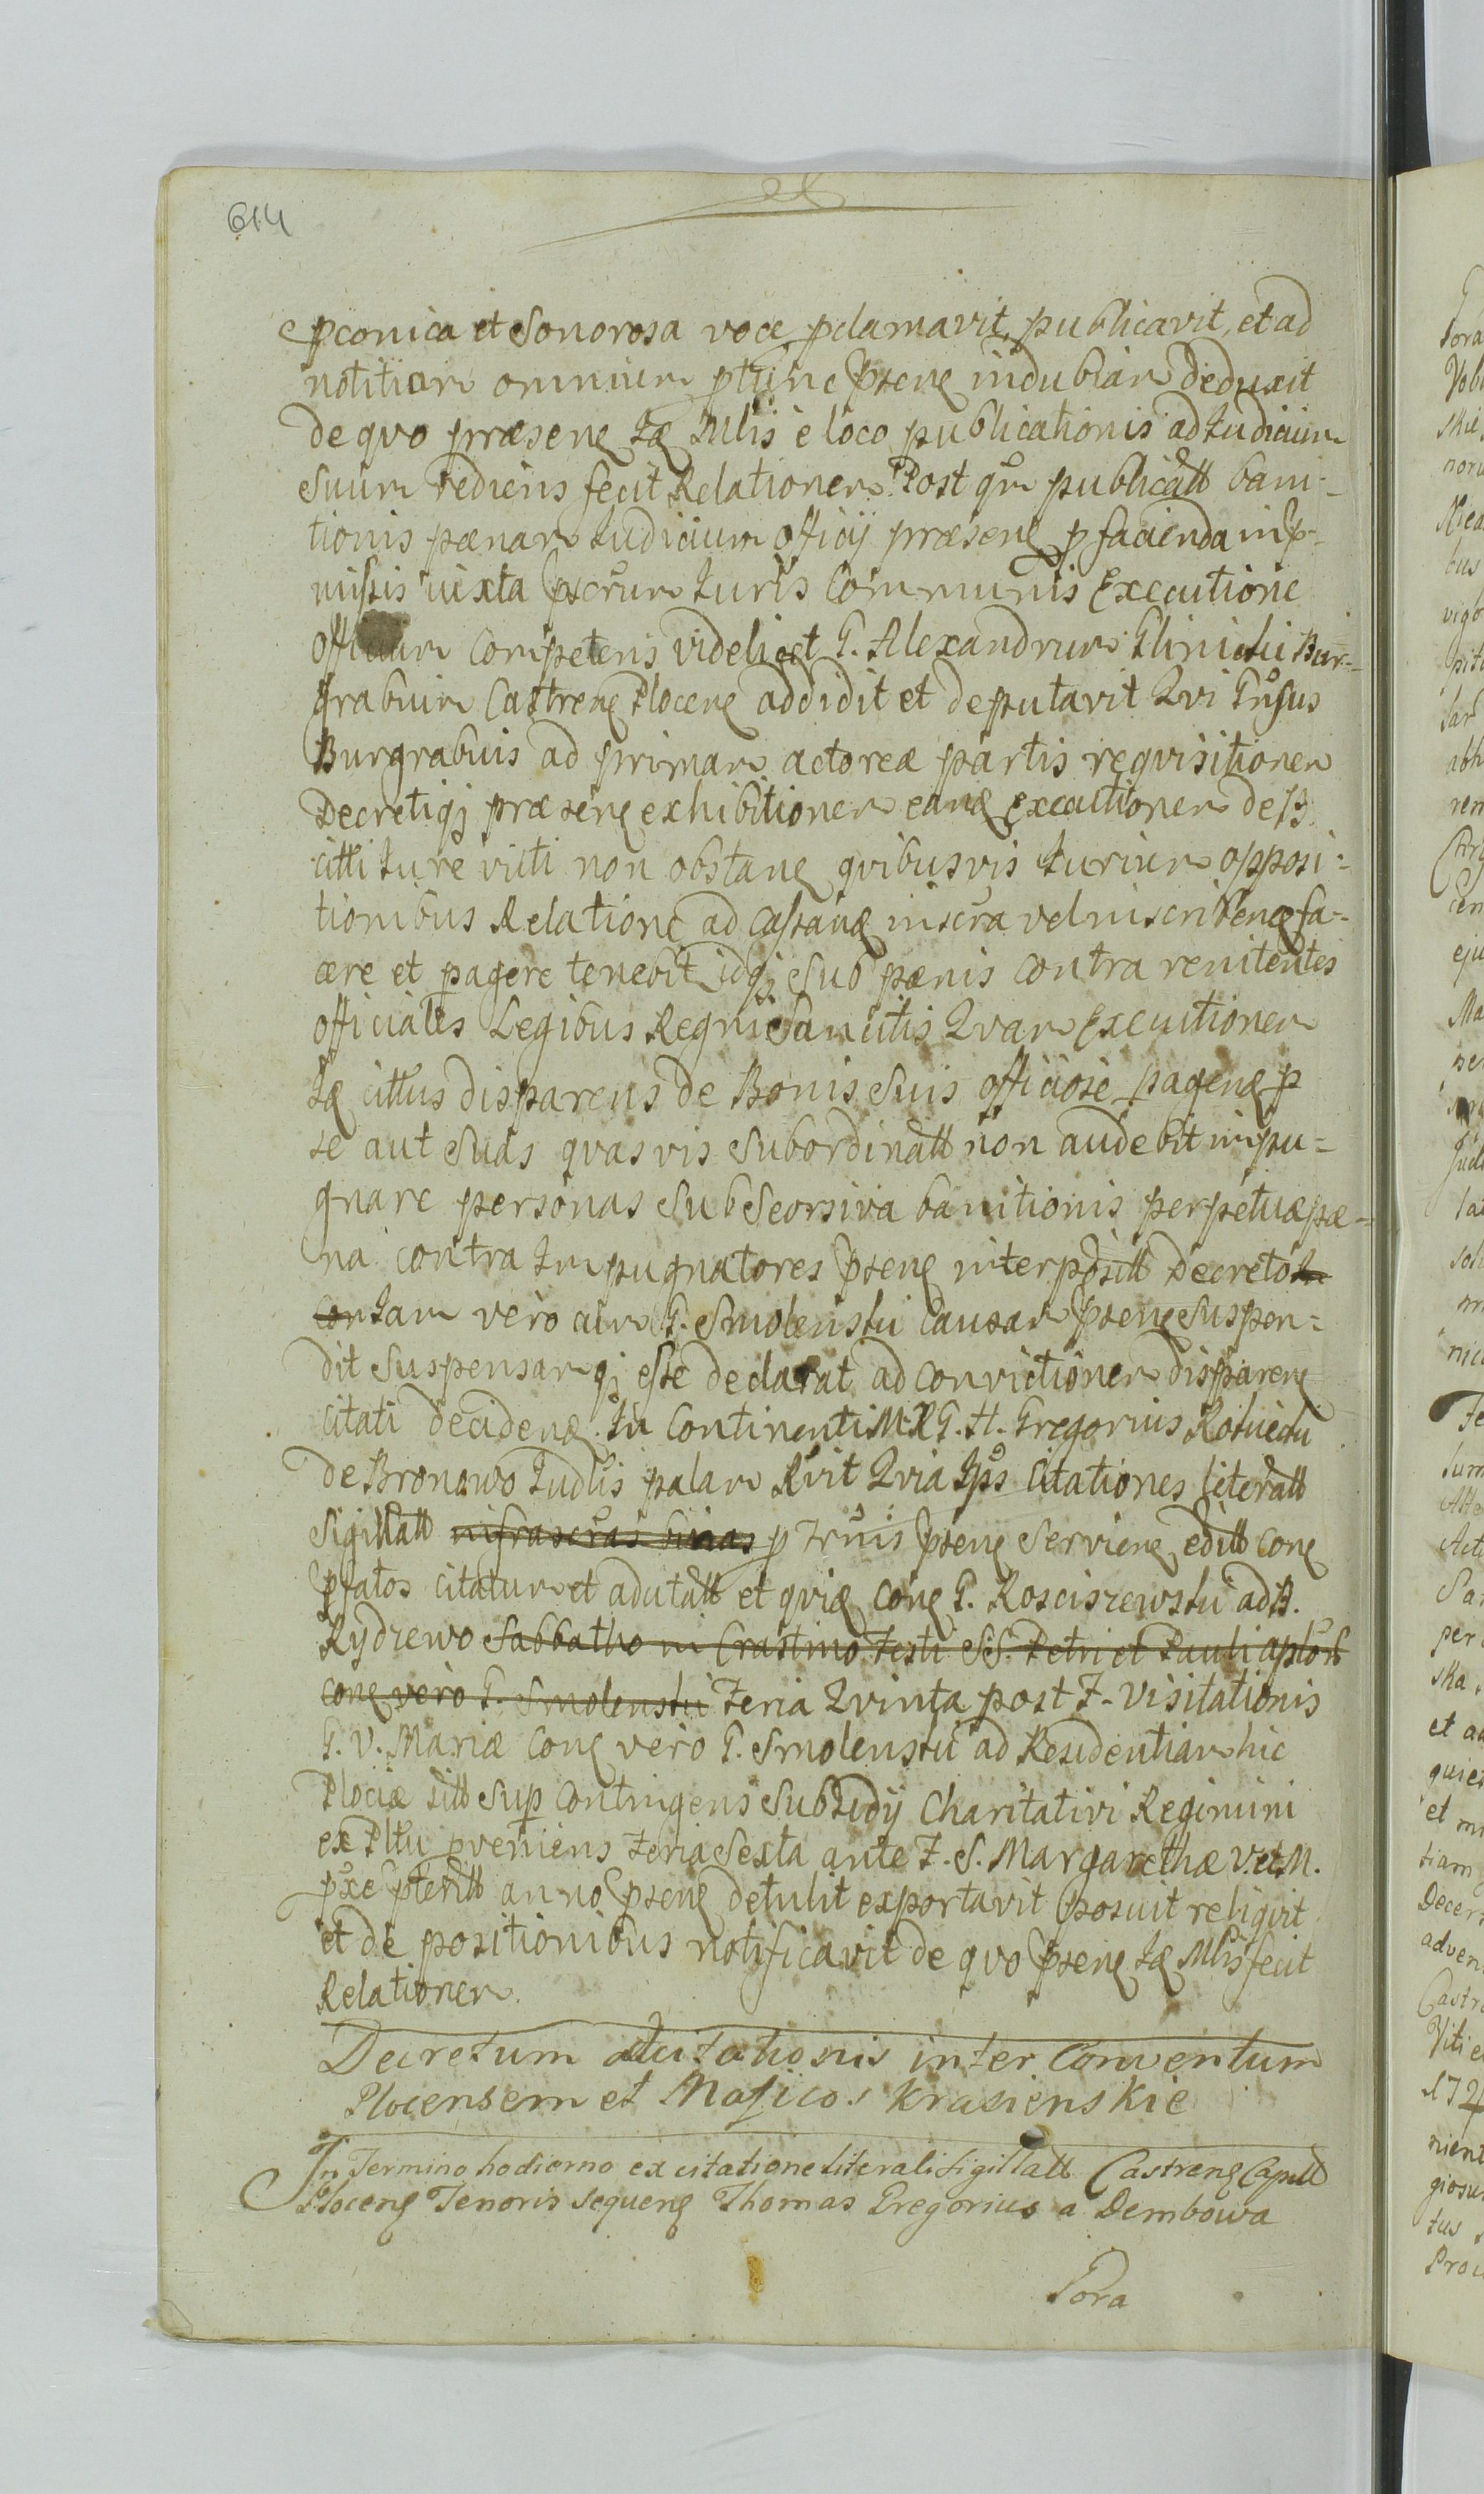 614
pconica et Sonorosa voce pclamavit, publicavit, et ad
notitiam omnium ptunc psens indubiam deduxit
de qvo præsens Idem Mlis è loco publicationis ad Judicium
Suum rediens fecit Relationem. Post qm publicatt bani-
tionis pænam Judicium officij præsens p facienda in p-
missis iuxta pscrum Juris Communis Executione
Officium Competens videlicet G. Alexandrum Glinicki Bur-
grabium Castrens Plocens addidit et deputavit Qvi Gnsus
Burgrabius ad primam actoreæ partis reqvisitionem
Decretiqj præsens exhibitionem eand Executionem de B.
citti Jure victi non obstan qvibusvis Jurium opposi-
tionibus Relatione ad Castrand inscra vel inscribend fa-
cere et pagere tenebit idqj Sub pænis contra renitentes
officiales Legibus Regni Sancitis Qvam Executionem
Idem cittus disparens de Bonis Suis officiose pagend p
se aut Suas qvasvis Subordinatt non audebit inpu-
gnare personas Sub Seorsiva banitionis perpetuæ pæ-
na contra Impugnatores psens interpositt Decreto
Con Jam vero cum G. Smolenski Causam psens Suspen-
dit Suspensamqj esse declarat ad convictionem disparens
citati decidend. In Continenti M.R.G.H. Gregorius Rościcki
de Bronowo Judlis palam Rvit Qvia Ips Citationes literatt
Sigillatt infrascras binas p Trnis psens Serviens editt Cone
pfatos citatum et adcitatt et qvid Cone G. Rosciszewski ad B.
Rydzewo Sabbatho in Crastino Festi SS. Petri et Pauli aplor
cone verò G. Smolenski Feria Qvinta post F. Visitationis
G. V. Mariæ Cone verò G. Smolenski ad Residentiam hic
Plociæ sitt Sup Contingens Subsidij Charitativi Regimini
ex Pltu pveniens Feria Sexta ante F. S. Margarethæ V. et M.
pxe pteritt anno psens detulit exportavit posuit religvit
et de positionibus notificavit de qvo psens Idem Mlis fecit
Relationem.
Decretum adcitationis inter Conventum
Plocensem et Mag̃icos Krasienskie
In Termino hodierno ex citatione literali Sigillatt Castrens Capitt
Plocens Tenoris sequens Thomas Gregorius a Dembowa
Gora